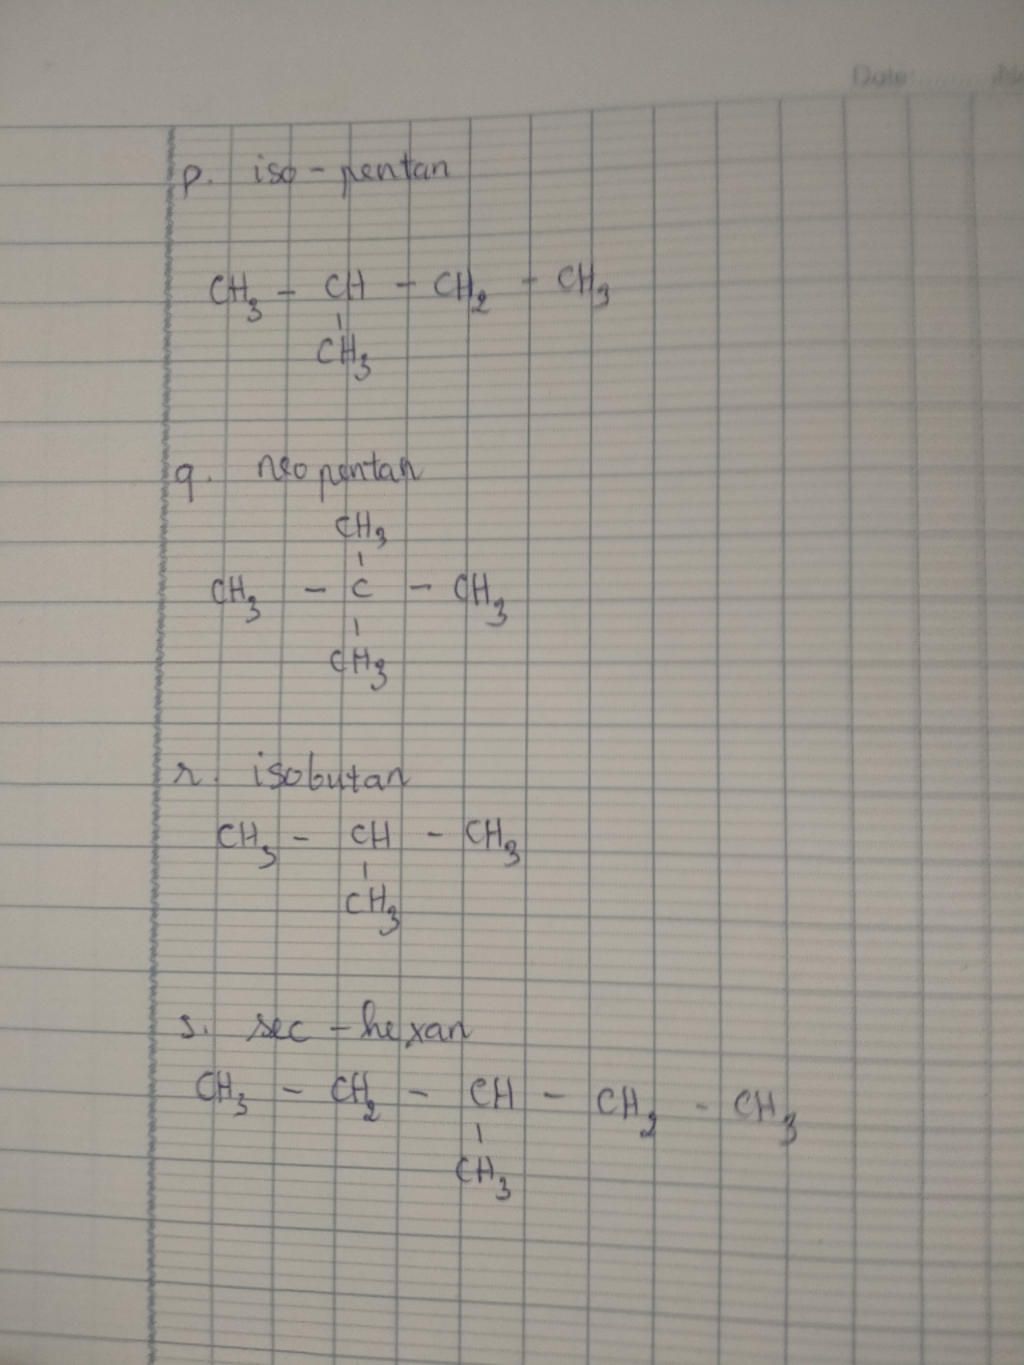 Date:
p. iso - pentan
CH3 - CH - CH2 - CH3
CH3
q. neopentan
CH3
CH3 - C - CH3
CH3
r. isobutan
CH3 - CH - CH3
CH3
s. sec - hexan
CH3 - CH2 - CH - CH2 - CH3
CH3